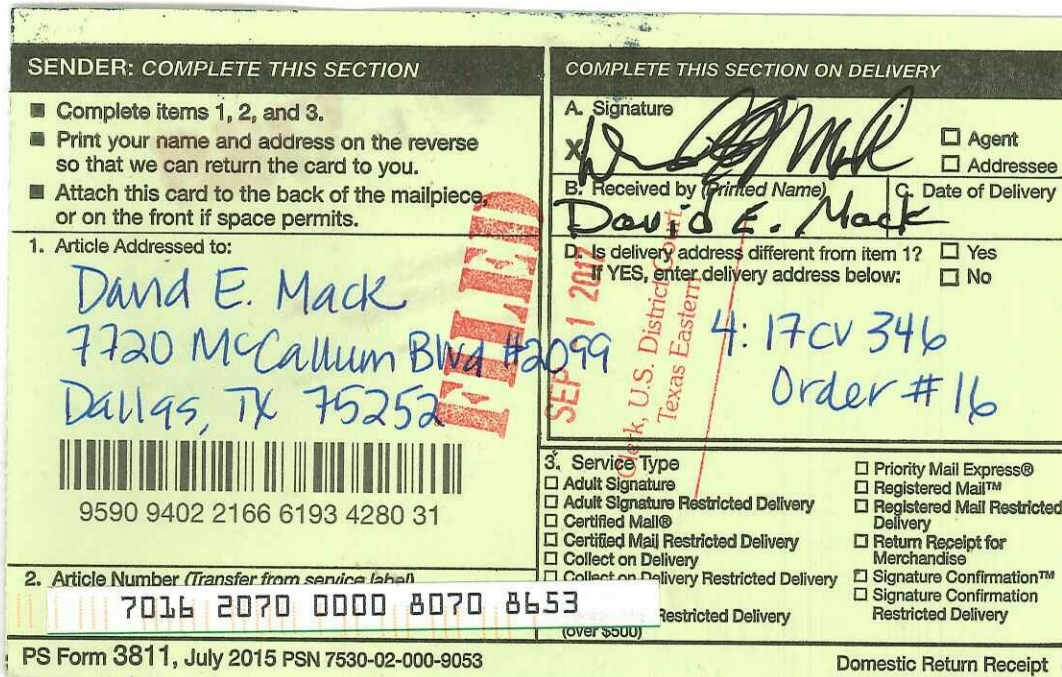 SENDER: COMPLETE THIS SECTION
■ Complete items 1, 2, and 3.
■ Print your name and address on the reverse
so that we can return the card to you.
■ Attach this card to the back of the mailpiece,
or on the front if space permits.
1. Article Addressed to:
David E. Mack
7720 McCallum Blvd #2099
Dallas, TX 75252
9590 9402 2166 6193 4280 31
2. Article Number (Transfer from service label)
7016 2070 0000 8070 8653
PS Form 3811, July 2015 PSN 7530-02-000-9053
FILED
SEP 1 2017
Clerk, U.S. District Court
Texas Eastern
COMPLETE THIS SECTION ON DELIVERY
A. Signature
X
☐ Agent
☐ Addressee
B. Received by (Printed Name)
David E. Mack
C. Date of Delivery
D. Is delivery address different from item 1? ☐ Yes
If YES, enter delivery address below: ☐ No
4:17cv 346
Order #16
3. Service Type
☐ Adult Signature
☐ Adult Signature Restricted Delivery
☐ Certified Mail®
☐ Certified Mail Restricted Delivery
☐ Collect on Delivery
☐ Collect on Delivery Restricted Delivery
Restricted Delivery
(over $500)
☐ Priority Mail Express®
☐ Registered Mail™
☐ Registered Mail Restricted
Delivery
☐ Return Receipt for
Merchandise
☐ Signature Confirmation™
☐ Signature Confirmation
Restricted Delivery
Domestic Return Receipt